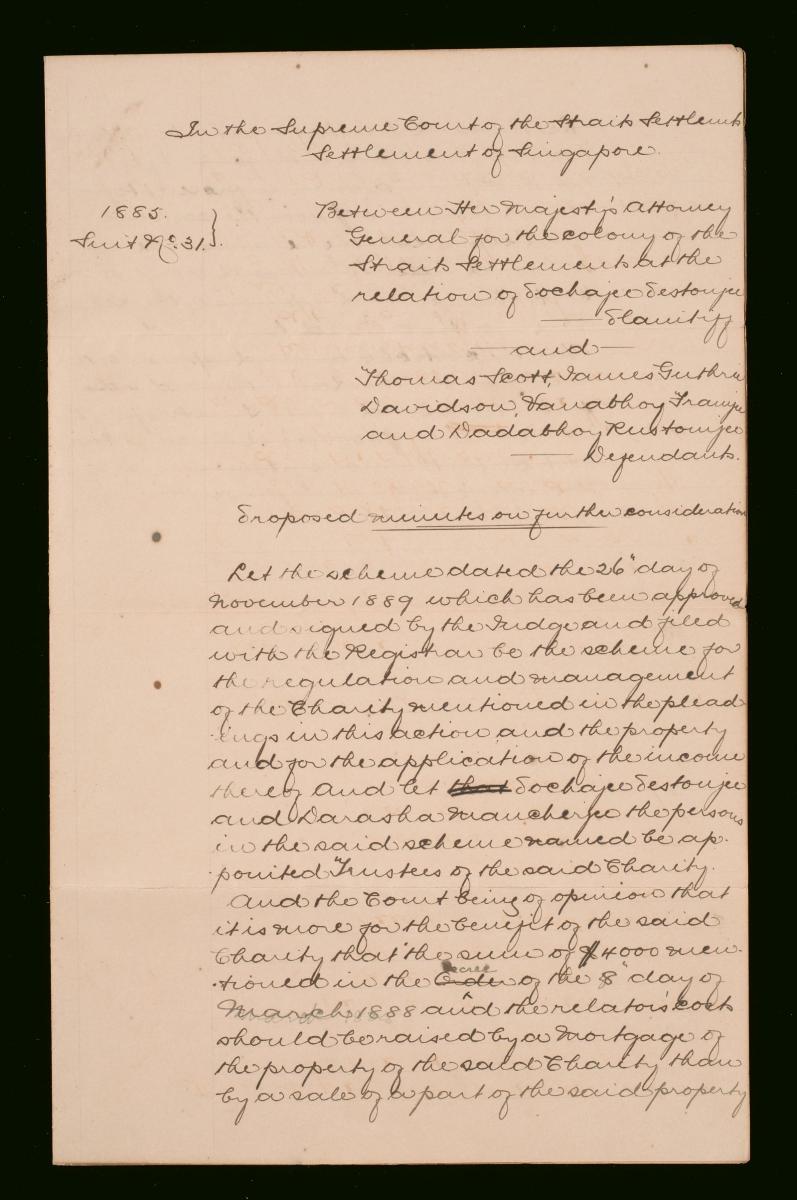 In the Supreme Court of the Straits Settlements
Settlement of Singapore.
1885.
Suit No. 31.
Between Her Majesty's Attorney
General for the colony of the
Straits Settlements at the
relation of Pochajee Pestonjee
Plaintiff
and
Thomas Scott, James Guthrie
Davidson, Nanabhoy Framjee
and Dadabhoy Rustomjee
Defendants.
Proposed minutes on further consideration
Let the scheme dated the 26" day of
November 1889 which has been approved
and signed by the Judge and filed
with the Registrar be the scheme for
the regulation and management
of the Charity mentioned in the plead
ings in this action and the property
and for the application of the income
thereof and let that Pochajee Pestonjee
and Darasha Mancherjee the persons
in the said scheme named be ap-
pointed Trustees of the said Charity.
And the Court being of opinion that
it is more for the benefit of the said
Charity that the sum of $4000 men-
tioned in the Order Decree of the 8" day of
March 1888 and the relator's costs
should be raised by a Mortgage of
the property of the said Charity than
by a sale of a part of the said property